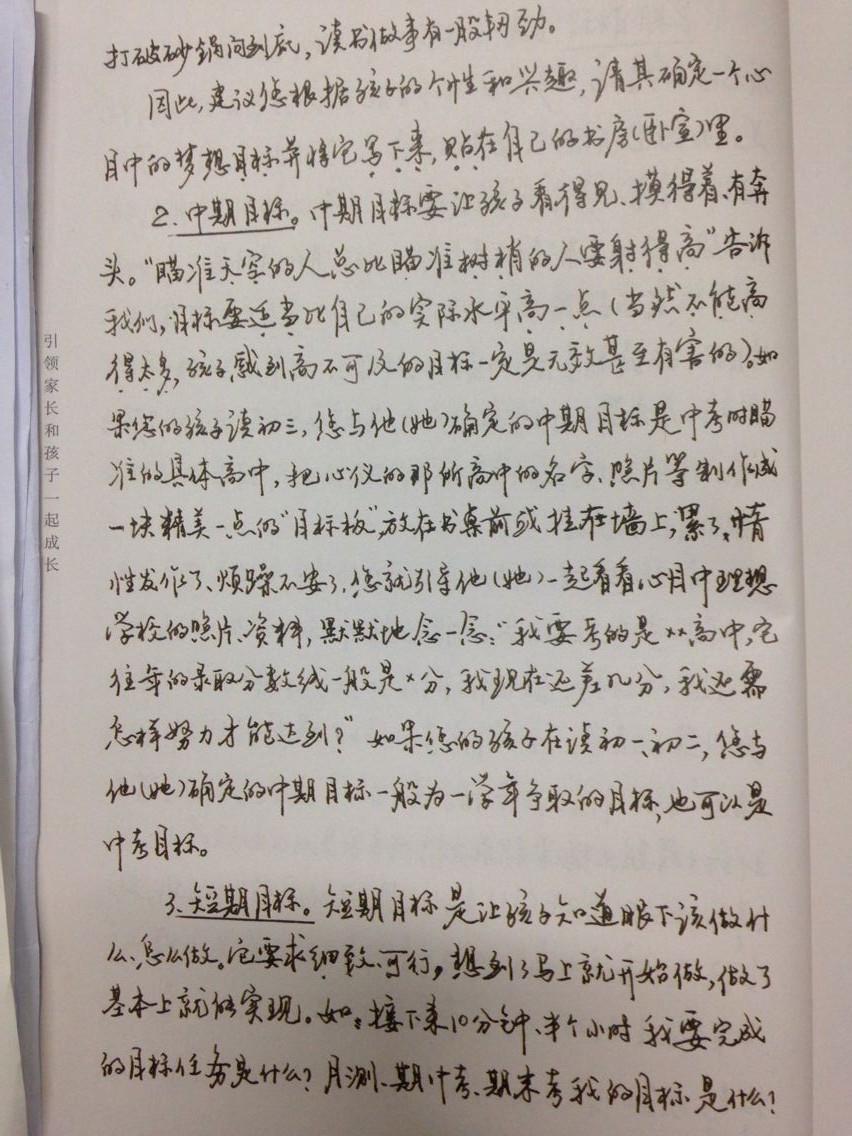 打破砂锅问到底,读书做事有一股韧劲。
因此,建议您根据孩子的个性和兴趣,请其确定一个心
目中的梦想目标并将它写下来,贴在自己的书房(卧室)里。
2.中期目标。中期目标要让孩子看得见、摸得着、有奔
头。“瞄准天空的人总比瞄准树梢的人要射得高”告诉
我们,目标要适当比自己的实际水平高一点(当然不能高
得太多,孩子感到高不可及的目标一定是无效甚至有害的)。如
果您的孩子读初三,您与他(她)确定的中期目标是中考时瞄
准的具体高中,把心仪的那所高中的名字、照片等制作成
一块精美一点的“目标板”放在书桌前或挂在墙上,累了、情
性发作了、烦躁不安了,您就引导他(她)一起看看心目中理想
学校的照片、资料,默默地念一念:“我要考的是××高中,它
往年的录取分数线一般是×分,我现在还差几分,我还需
怎样努力才能达到?”如果您的孩子在读初一、初二,您与
他(她)确定的中期目标一般为一学年争取的目标,也可以是
中考目标。
3.短期目标。短期目标是让孩子知道眼下该做什
么、怎么做。它要求细致、可行,想到了马上就开始做,做了
基本上就能实现。如:接下来10分钟、半个小时我要完成
的目标任务是什么?月测、期中考、期末考我的目标是什么?
引领家长和孩子一起成长